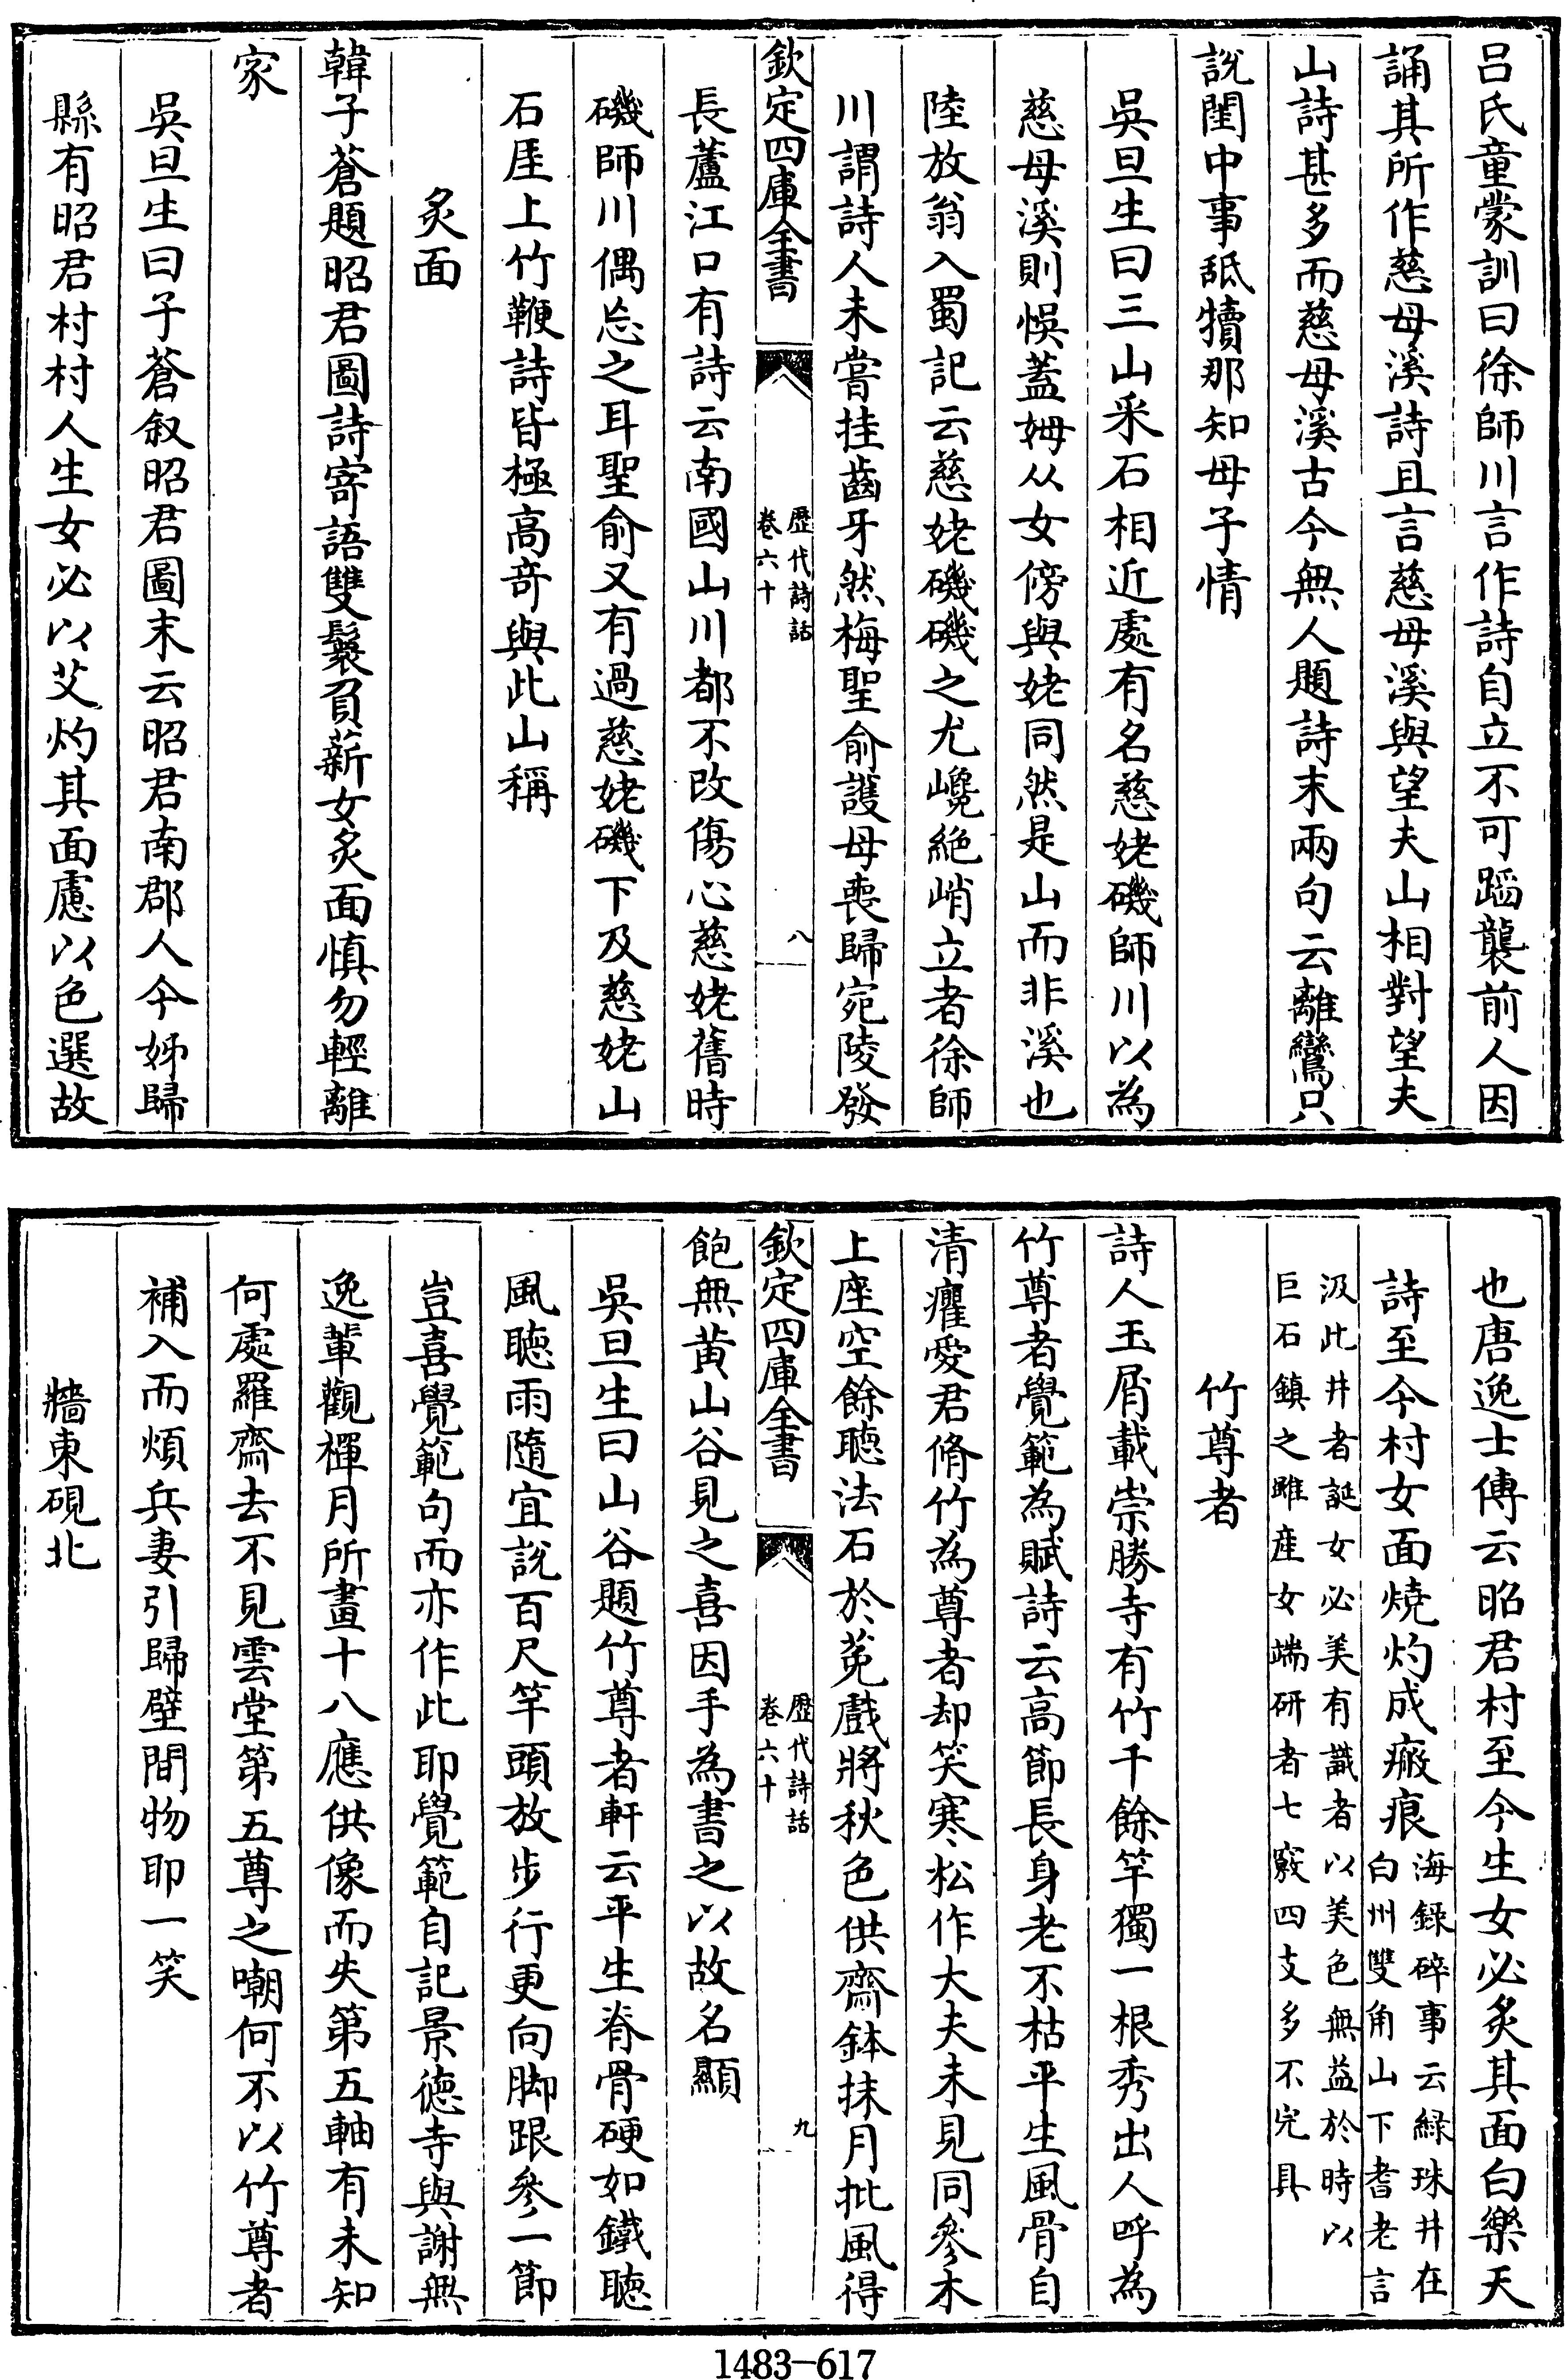 呂氏童蒙訓曰徐師川言作詩自立不可蹈襲前人因
誦其所作慈母溪詩且言慈母溪與望夫山相對望夫
山詩甚多而慈母溪古今無人題詩末兩句云離鸞只
說閨中事舐犢那知母子情
吳旦生曰三山釆石相近處有名慈姥磯師川以為
慈母溪則悞蓋姆从女傍與姥同然是山而非溪也
陸放翁入蜀記云慈姥磯磯之尤巉絕峭立者徐師
川謂詩人未嘗挂齒牙然梅聖俞護母喪歸宛陵發
欽定四庫全書
歷代詩話
卷六十
八
長蘆江口有詩云南國山川都不改傷心慈姥舊時
磯師川偶忘之耳聖俞又有過慈姥磯下及慈姥山
石厓上竹鞭詩皆極高奇與此山稱
炙面
韓子蒼題昭君圖詩寄語雙鬟負薪女炙面慎勿輕離
家
吳旦生曰子蒼叙昭君圖末云昭君南郡人今姊歸
縣有昭君村村人生女必以艾灼其面慮以色選故
也唐逸士傳云昭君村至今生女必炙其面白樂天
詩至今村女面燒灼成瘢痕
海録碎事云緑珠井在
白州雙角山下耆老言
汲此井者誕女必美有識者以美色無益於時以
巨石鎮之雖産女端研者七竅四支多不完具
竹尊者
詩人玉屑載崇勝寺有竹千餘竿獨一根秀出人呼為
竹尊者覺範為賦詩云高節長身老不枯平生風骨自
清癯愛君脩竹為尊者却笑寒松作大夫未見同參木
上座空餘聽法石於菟戲將秋色供齋鉢抹月批風得
欽定四庫全書
歷代詩話
卷六十
九
飽無黃山谷見之喜因手為書之以故名顯
吳旦生曰山谷題竹尊者軒云平生脊骨硬如鐵聽
風聽雨隨宜說百尺竿頭放步行更向脚跟參一節
豈喜覺範句而亦作此耶覺範自記景徳寺與謝無
逸輩觀禪月所畫十八應供像而失第五軸有未知
何處羅齋去不見雲堂第五尊之嘲何不以竹尊者
補入而煩兵妻引歸壁間物耶一笑
牆東硯北
1483-617